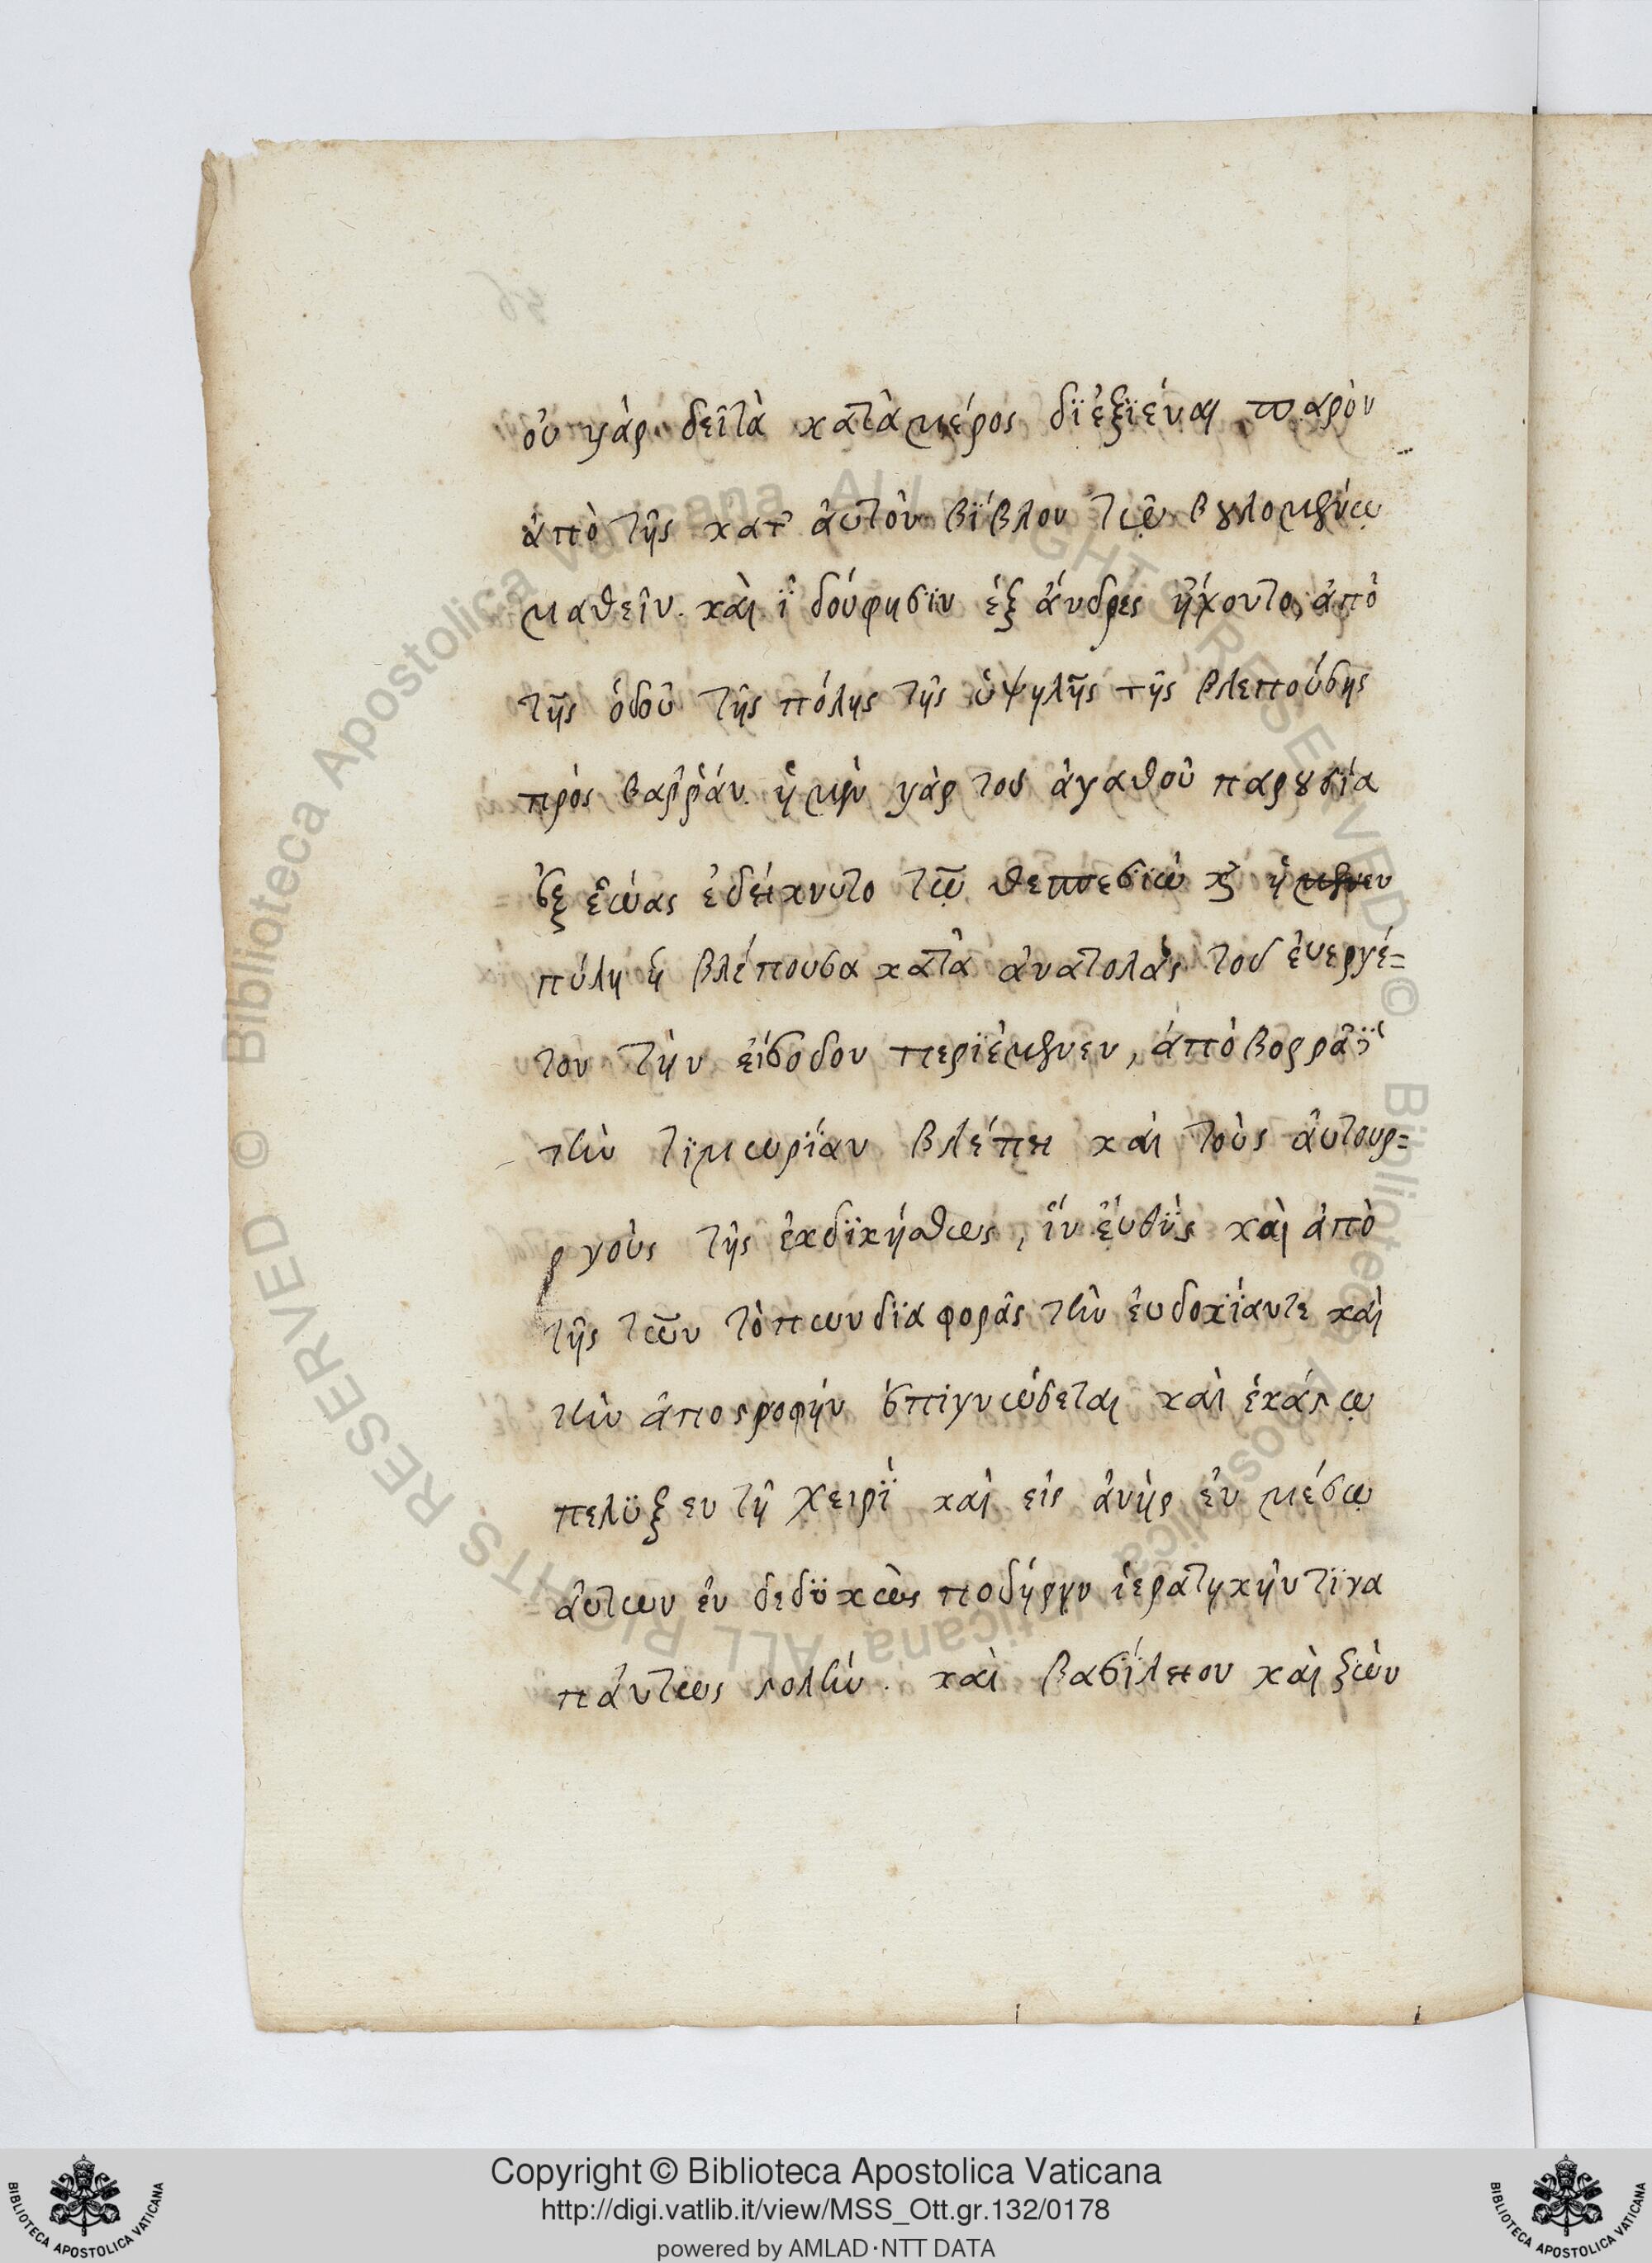 οὐ γὰρ δεῖ τὰ κατὰ μέρος διεξϊέναι παρὸν
ἀπὸ τῆς κατ' ἀυτὸν βϊβλον τῶ βουλομένω
μαθεῖν. καὶ ϊδού φησϊν ἑξ ἄνδρες ἤχοντο, ἀπὸ
τῆς ὁδοῦ τῆς πόλης τῆς ὑψηλῆς τῆς βλεπούσης
πρὸς βαῤῥάν. ἡ μὲν γὰρ τοῦ ἀγαθοῦ παρουσία
ἐξ ἑώας ἐδείκνυτο τῶ θεσπεσιω
πύλη ἡ βλέπουσα κατὰ ἀνατολὰς τοῦ ἐυεργέ=
του τὴν εἴσοδον περϊέμενεν, ἀπὸ βορρᾶ
τὴν τϊμωρϊαν βλέπει καὶ τοὺς ἀυτουρ=
ργοὺς τῆς ἐκδϊκήσεως, ἵν ἐυθὺς καὶ ἀπὸ
τῆς τῶν τὸπων δϊαφορᾶς τὴν ἐυδοκϊαν τε καὶ
τὴν ἀποστροφήν ἐπιγνώσεται καὶ ἑκάστω
πελϋξ εν τῆ χειρϊ καὶ εἱς ἀνὴρ ἐν μέσω
ἀυτων ἐν δεδϋκὼς ποδήρην ἱερατηκήν τϊνα
πάντως στολήν. καὶ βασϊλειον καὶ ζών